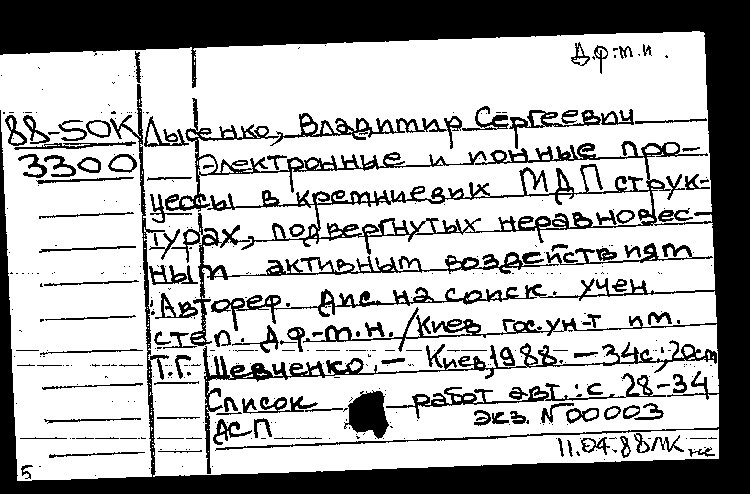 Д.ф.-м.н.
88-50К
3300
Лысенко, Владимир Сергеевич
Электронные и ионные про-
цессы в кремниевых МДП струк-
турах, подвергнутых неравновес-
ным активным воздействиям
: Автореф. дис. на соиск. учен.
степ. д.ф.-м.н. / Киев гос. ун-т им.
Т.Г. Шевченко. — Киев, 1988. — 34с.; 20см
Список работ авт.: с. 28-34
ДСП экз. N 00003
11.04.88 ЛК
5